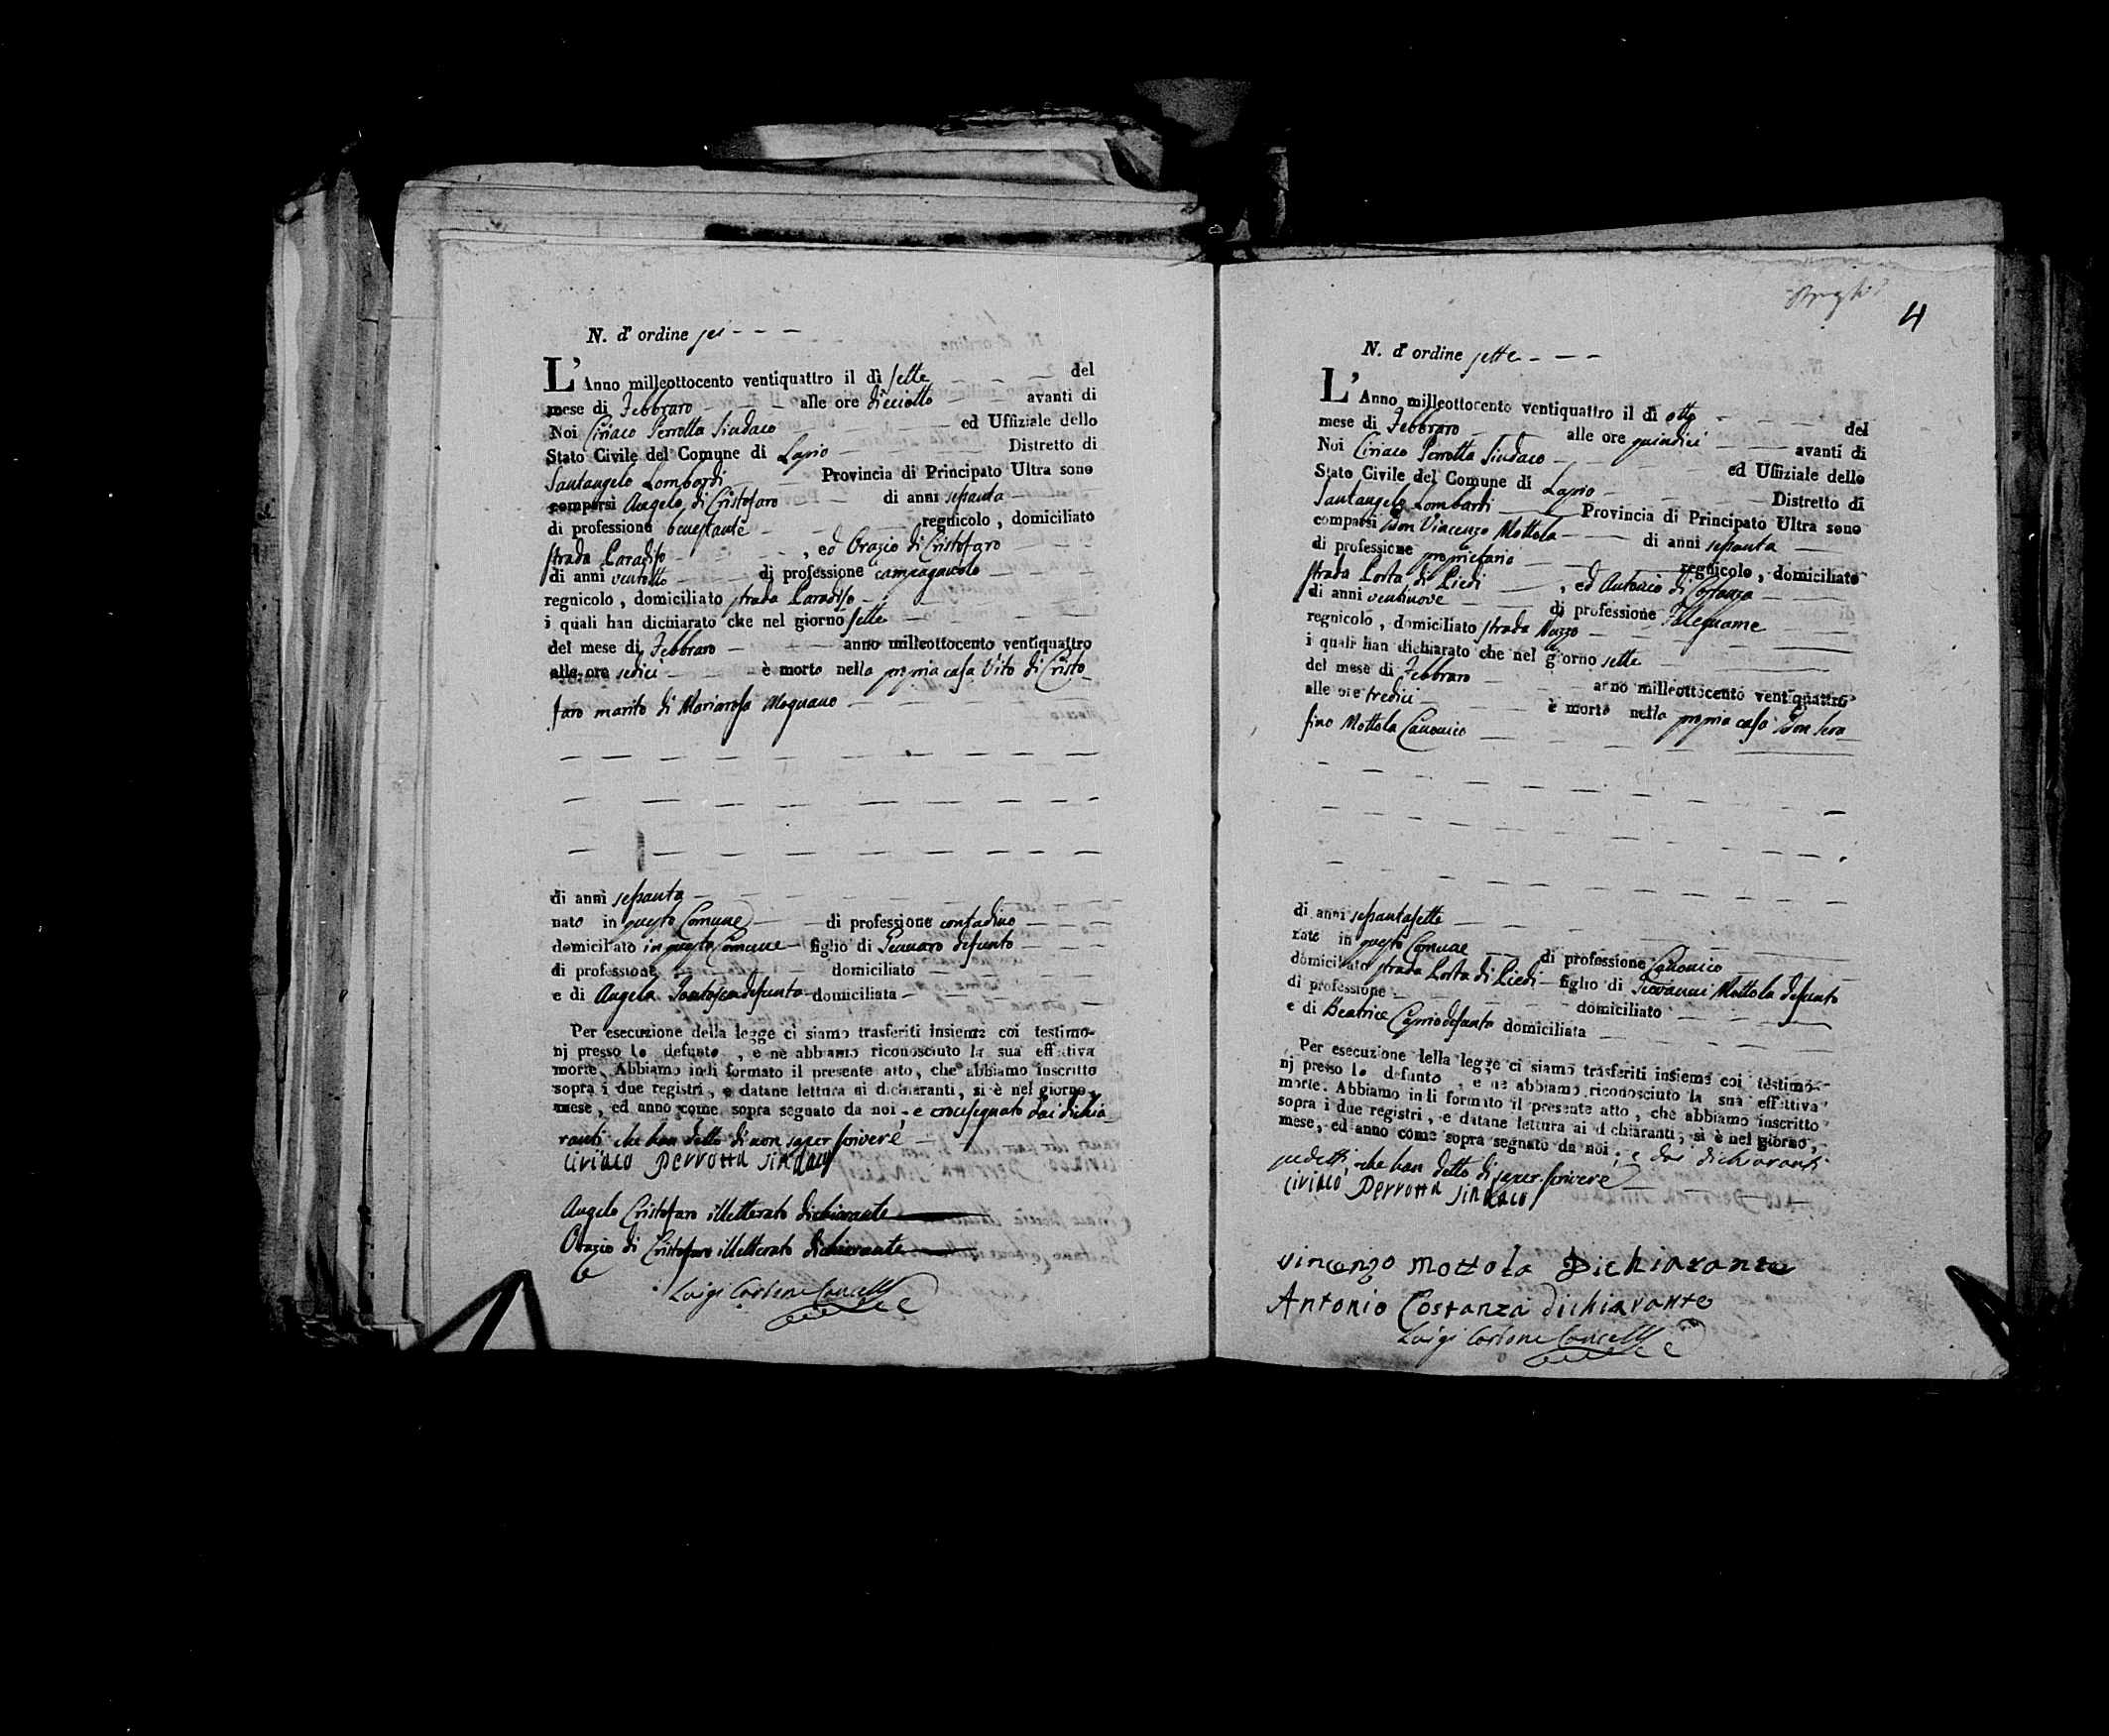 N. d'ordine sei - - -
L'Anno milleottocento ventiquattro il dì sette del
mese di Febbraro alle ore dieciotto avanti di
Noi Ciriaco Perrotta Sindaco ed Uffiziale dello
Stato Civile del Comune di Lapio Distretto di
Santangelo Lombardi Provincia di Principato Ultra sono
comparsi Angelo di Cristofaro di anni sessanta
di professione benestante regnicolo, domiciliato
strada Paradiso, ed Orazio di Cristofaro
di anni ventotto di professione campagnuolo
regnicolo, domiciliato strada Paradiso
i quali han dichiarato che nel giorno sette
del mese di Febbraro anno milleottocento ventiquattro
alle ore sedici è morto nella propria casa Vito di Cristo-
faro marito di Mariarosa
di anni sessanta
nato in questo Comune di professione contadino
domiciliato in questo Comune figlio di Gennaro defunto
di professione domiciliato
e di Angela defunta domiciliata
Per esecuzione della legge ci siamo trasferiti insieme coi testimo-
nj presso lo defunto, e ne abbiamo riconosciuto la sua effettiva
morte. Abbiamo indi formato il presente atto, che abbiamo inscritto
sopra i due registri, e datane lettura ai dichiaranti, si è nel giorno,
mese, ed anno come sopra segnato da noi, e crocesegnato dai dichia
ranti che han detto di non saper scrivere
Ciriaco Perrotta Sindaco
Angelo Cristofaro illetterato dichiarante
Orazio di Cristofaro illetterato dichiarante
Luigi Carbone Cancell
4
N. d'ordine sette - - -
L'Anno milleottocento ventiquattro il dì otto del
mese di Febbraro alle ore quindici avanti di
Noi Ciriaco Perrotta Sindaco ed Uffiziale dello
Stato Civile del Comune di Lapio Distretto di
Santangelo Lombardi Provincia di Principato Ultra sono
comparsi Don Vincenzo Mottola di anni sessanta
di professione proprietario regnicolo, domiciliato
strada Porta di Piedi, ed Antonio di Costanza
di anni ventinove di professione Falegname
regnicolo, domiciliato strada
i quali han dichiarato che nel giorno sette
del mese di Febbraro anno milleottocento ventiquattro
alle ore tredici è morto nella propria casa Don Sera
fino Mottola Canonico
di anni sessantasette
nato in questo Comune di professione Canonico
domiciliato strada Porta di Piedi figlio di Giovanni Mottola defunto
di professione domiciliato
e di Beatrice Caprio defunta domiciliata
Per esecuzione della legge ci siamo trasferiti insieme coi testimo-
nj presso lo defunto, e ne abbiamo riconosciuto la sua effettiva
morte. Abbiamo indi formato il presente atto, che abbiamo inscritto
sopra i due registri, e datane lettura ai dichiaranti, si è nel giorno,
mese, ed anno come sopra segnato da noi, e dai dichiaranti
sudetti, che han detto di saper scrivere
Ciriaco Perrotta Sindaco
Vincenzo Mottola Dichiarante
Antonio Costanza dichiarante
Luigi Carbone Cancell